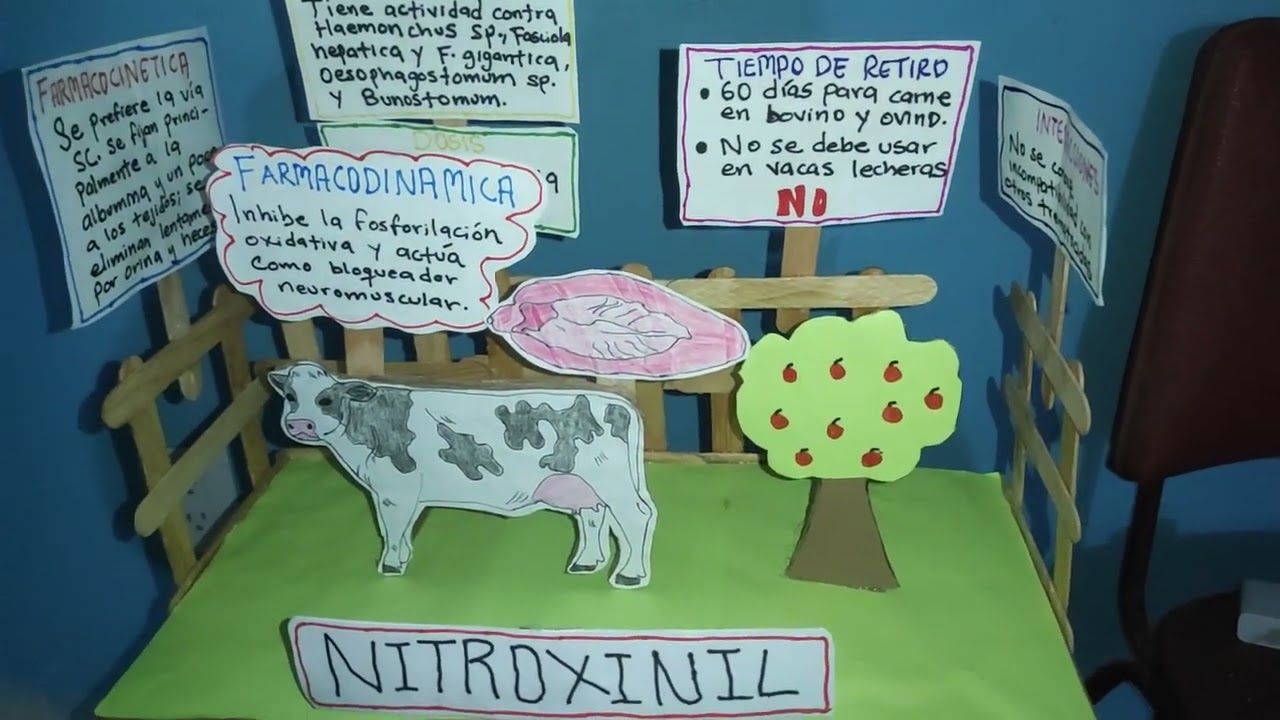 FARMACOCINETICA
Se prefiere la vía
SC. se fijan princi-
palmente a la
albumina y un poco
a los tejidos; se
eliminan
por orina y heces
Tiene actividad contra
Haemonchus Sp., Fasciola
hepatica y F. gigantica,
Oesophagostomum sp.
y Bunostomum.
DOSIS
FARMACODINAMICA
Inhibe la fosforilación
oxidativa y actúa
como bloqueador
neuromuscular.
TIEMPO DE RETIRO
• 60 días para carne
en bovino y ovino.
• No se debe usar
en vacas lecheras
NO
INTERACCIONES
No se
con
otros
NITROXINIL